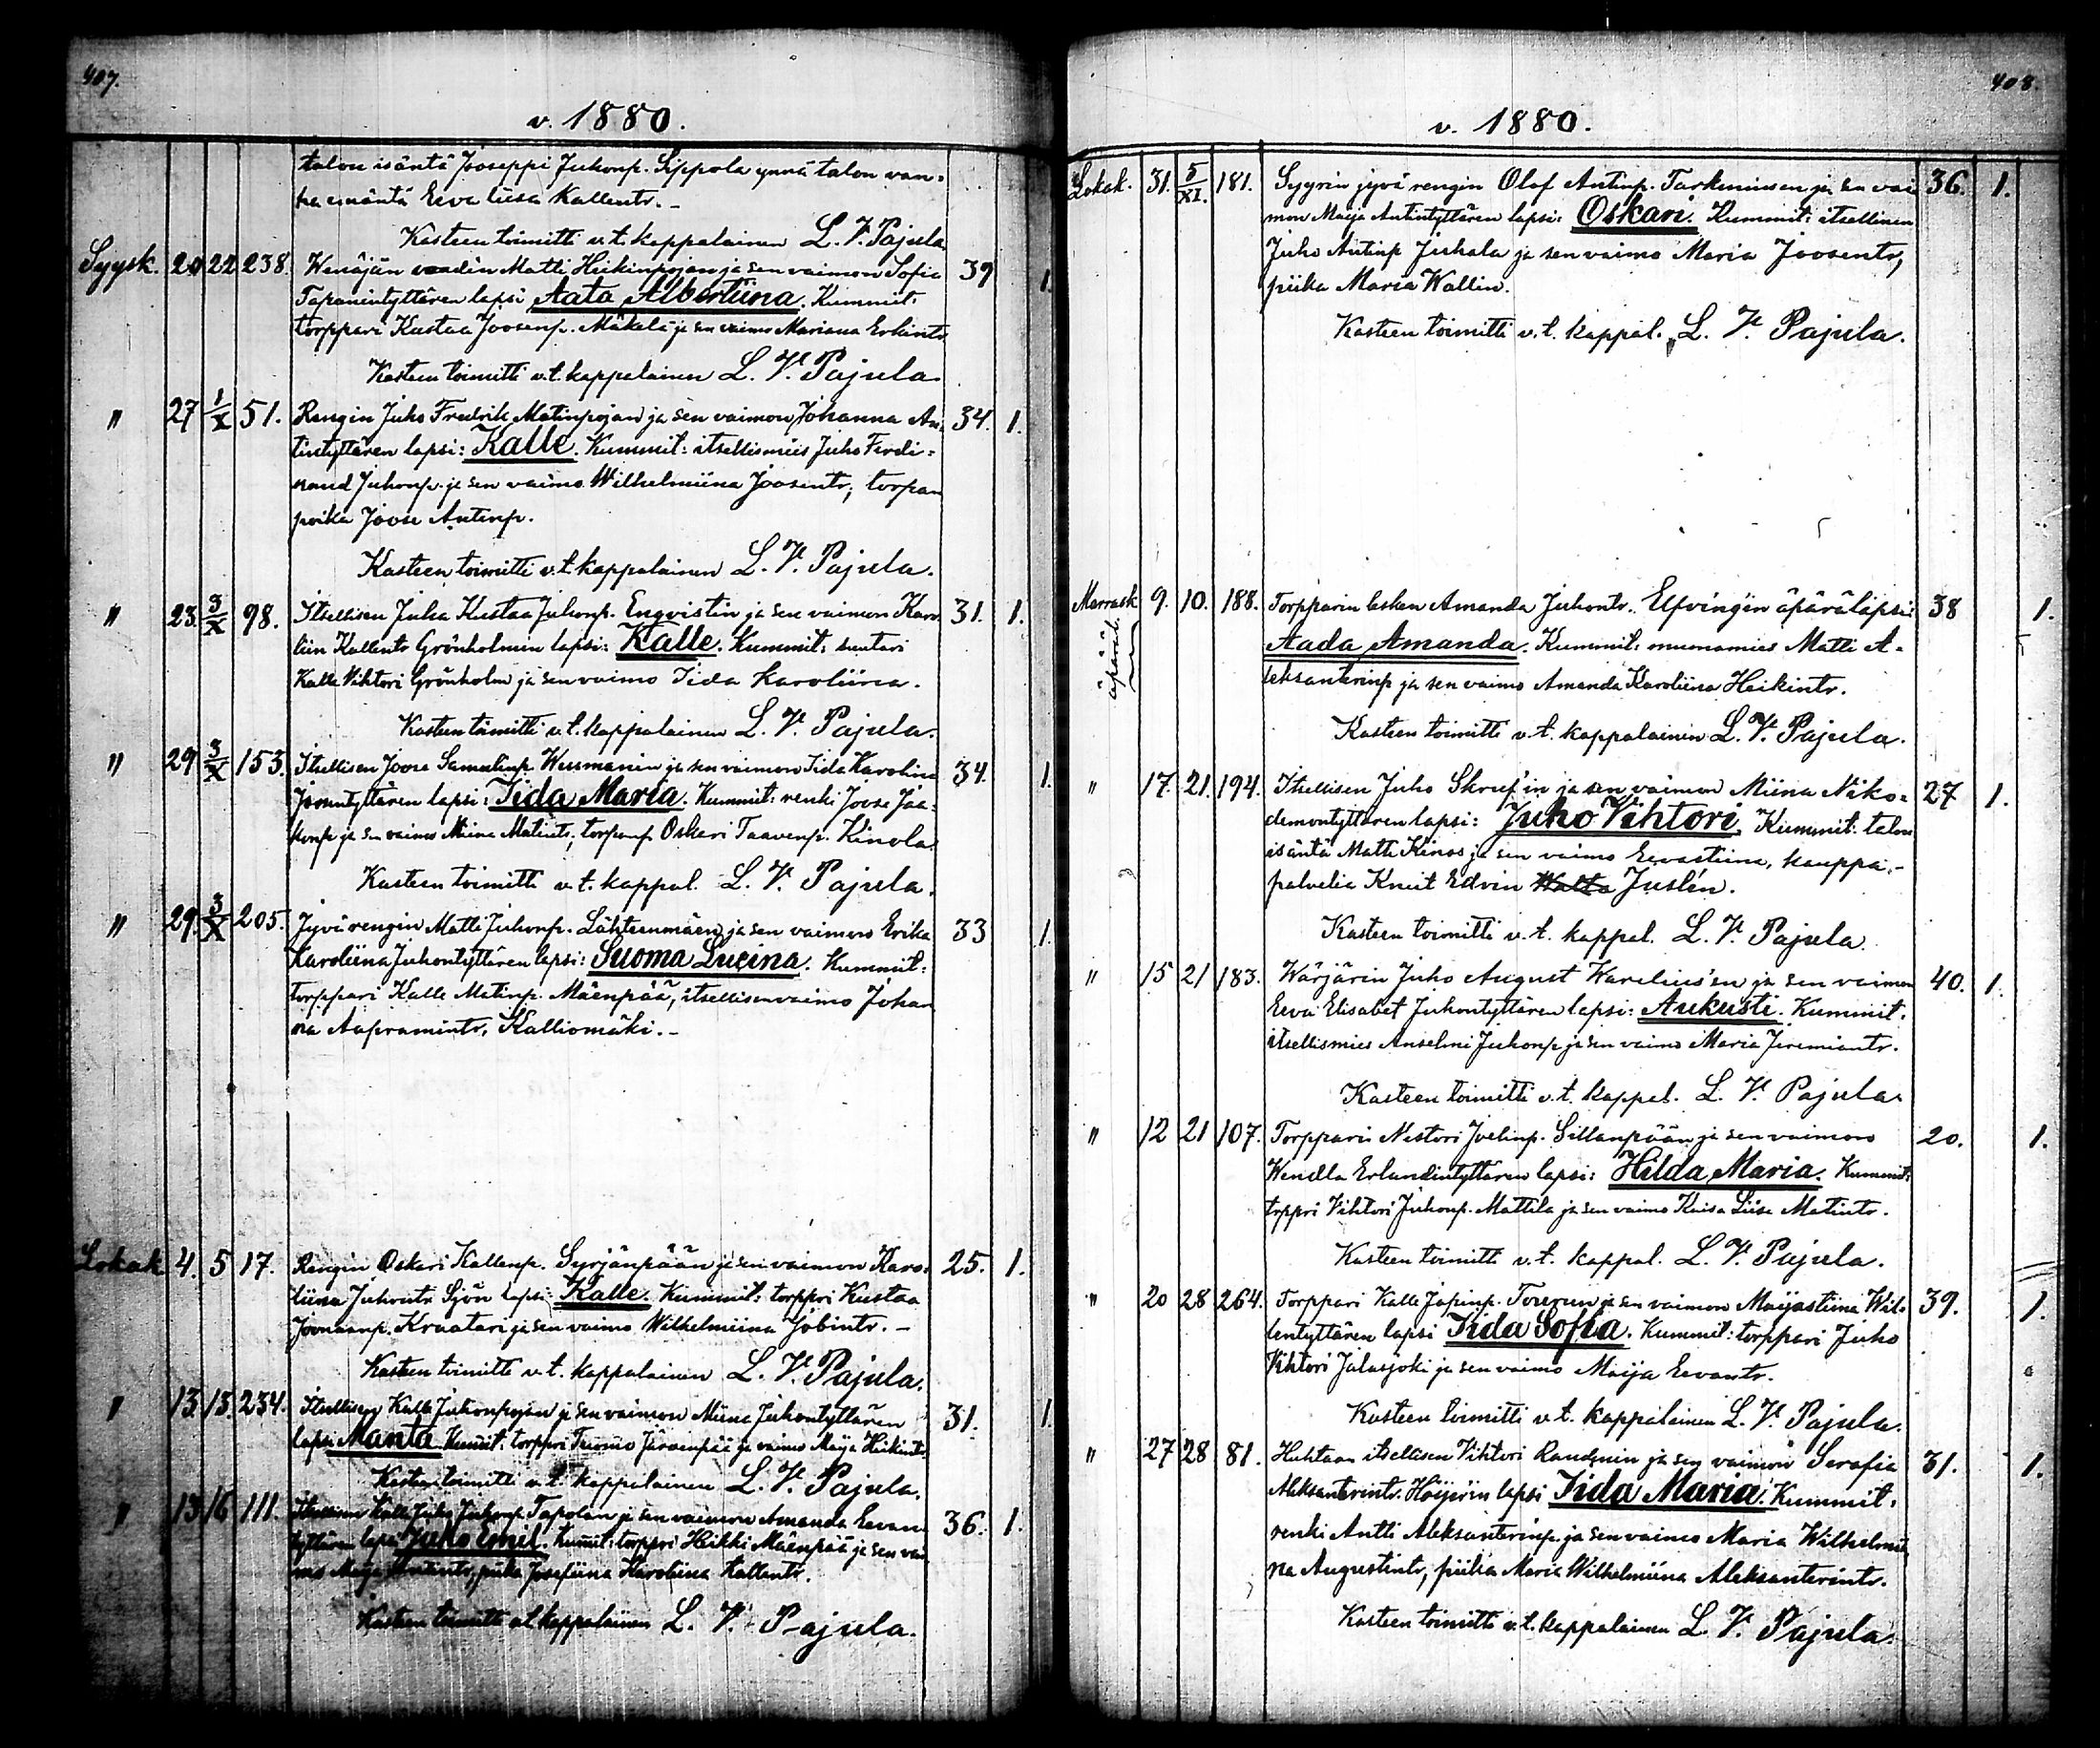 407.
v. 1880.
talon isäntä Jooseppi Juhonp. Sippola ynnä talon van-
ha emäntä Eeva Liisa Kallentr. -
Kasteen toimitti v.t. kappalainen L. V. Pajula
Syysk. 20 22 238. Wenäjän Matti Heikinpojan ja sen vaimon Sofia 39 1.
Tapanintyttären lapsi Aata Albertiina. Kummit:
torppari Kustaa Joosenp. Mäkelä ja sen vaimo Mariana Erkintr.
Kasteen toimitti v.t. kappalainen L. V. Pajula.
" 27 1/X 51. Rengin Juho Fredrik Matinpojan ja sen vaimon Johanna An- 34. 1.
tintyttären lapsi: Kalle. Kummit: itsellismies Juho Ferdi-
nand Juhonp. ja sen vaimo Wilhelmiina Joosentr; torpan
poika Joose Antinp.
Kasteen toimitti v.t. kappalainen L. V. Pajula.
" 23. 3/X 98. Itsellisen Juha Kustaa Juhonp. Enqvistin ja sen vaimon Karo- 31. 1.
liin Kallentr Grönholmin lapsi: Kalle. Kummit: suutari
Kalle Vihtori Grönholm ja sen vaimo Iida Karoliina.
Kasteen toimitti v.t. kappalainen L. V. Pajula.
" 29 3/X 153. Itsellisen Joose Samulinp. ja sen vaimon Iida Karolina 34. 1.
lapsi: Iida Maria. Kummit: renki Joose Jaa-
konp ja sen vaimo Miina Matintr, torpanp. Oskari Taavenp. Kinola.
Kasteen toimitti v.t. kappal. L. V. Pajula.
" 29. 3/X 205. Jyvärengin Matti Juhonp. Lähteenmäen ja sen vaimon Erika 33 1.
Karoliina Juhontyttären lapsi: Suoma Lucina. Kummit:
torppari Kalle Matinp. Mäenpää, itsellisenvaimo Johan
na Aapramintr. Kalliomäki. -
Lokak 4. 5 17. Rengin Oskari Kallenp. Syrjänpään ja sen vaimon Karo- 25. 1.
liina Juhontr Sjön lapsi: Kalle. Kummit: torppri Kustaa
Joonaanp. Kraatari ja sen vaimo Wilhelmiina Jobintr. -
Kasteen toimitti v.t. kappalainen L. V. Pajula.
" 13. 13. 234. Itsellisen Kalle Juhonpojan ja sen vaimon Miina Juhontyttären 31. 1.
lapsi Manta. Kummit: torppri Tuomo Järvenpää ja vaimo Maija Heikintr.
Kasteen toimitti v.t. kappalainen L. V. Pajula.
" 13 16 111. Itsellisen Kalle Juho Juhonp. Tapolan ja sen vaimon Amanda Eevan- 36. 1.
tyttären lapsi Juho Emil. Kummit: torppri Heikki Mäenpää ja sen vai
mo Maija Antintr, piika Josefiina Karoliina Kallentr.
Kasteen toimitti v.t. kappalainen L. V. Pajula.
408.
v. 1880.
Lokak. 31. 5/XI. 181. Syyrin jyvä rengin Olof Antinp. Tarkminsen ja sen vai 36. 1.
mon Maija Antintyttären lapsi: Oskari. Kummit: itsellinen
Juho Antinp Juhala ja sen vaimo Maria Joosentr,
piika Maria Wallin.
Kasteen toimitti v.t. kappal. L. V. Pajula.
Marrask 9. 10. 188. Torpparin lesken Amanda Juhontr. Elfvingin äpärälapsi: 38 1.
äpärä l.
Aada Amanda. Kummit: muonamies Matti A-
leksanterinp ja sen vaimo Amanda Karoliina Heikintr.
Kasteen toimitti v.t. kappalainen L. V. Pajula.
" 17. 21. 194. Itsellisen Juho Skruf'in ja sen vaimon Miina Niko- 27 1.
demontyttären lapsi: Juho Vihtori. Kummit: talon
isäntä Matti Kinos ja sen vaimo Eevastiina, kauppa-
palvelia Knut Edvin Juslén.
Kasteen toimitti v.t. kappal. L. V. Pajula.
" 15 21 183. Wärjärin Juho August Karelius'en ja sen vaimon 40. 1.
Eeva Elisabet Juhontyttären lapsi: Aukusti. Kummit:
itsellismies Anselmi Juhonp ja sen vaimo Maria Jeremiantr.
Kasteen toimitti v.t. kappal. L. V. Pajula.
" 12 21 107. Torpparin Nestori Joelinp. Sillanpään ja sen vaimon 20. 1.
Wendla Erlandintyttären lapsi: Hilda Maria. Kummit:
torppri Vihtori Juhonp. Mattila ja sen vaimo Kaisa Liisa Matintr.
Kasteen toimitti v.t. kappal. L. V. Pajula.
" 20 28 264. Torppari Kalle Japinp. Tourun ja sen vaimon Maijastiina Wil- 39. 1.
lentyttären lapsi Iida Sofia. Kummit: torppari Juho
Vihtori Jalasjoki ja sen vaimo Maija Eevantr.
Kasteen toimitti v.t. kappalainen L. V. Pajula.
" 27 28 81. Huhtaan itsellisen Vihtori Randenin ja sen vaimon Serafia 31. 1.
Aleksanterintr. Höijerin lapsi Iida Maria. Kummit:
renki Antti Aleksanterinp. ja sen vaimo Maria Wilhelmii
na Augustintr, piika Maria Wilhelmiina Aleksanterintr.
Kasteen toimitti v.t. kappalainen L. V. Pajula.